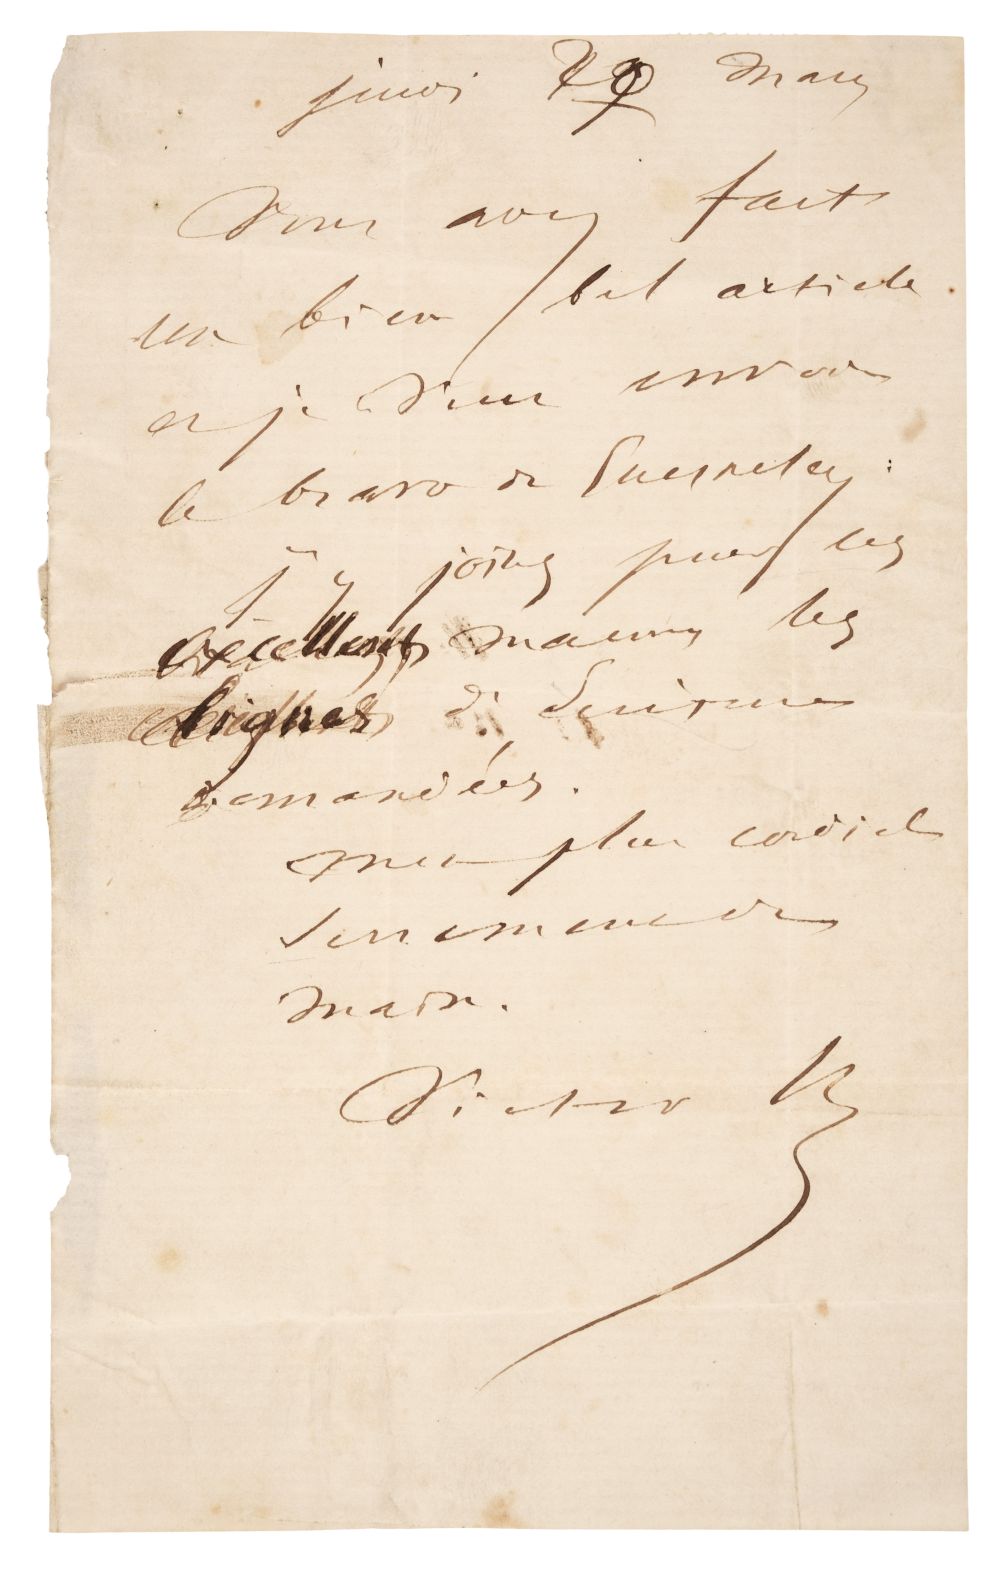 jeudi 29 mars
Vous avez fait
un bien bel article
et je vous envoie
le bravo de Guernesey.
j'y joins pour vos
excellents les
lignes de
demandées.
mon plus cordial
serrement de
main.
Victor H